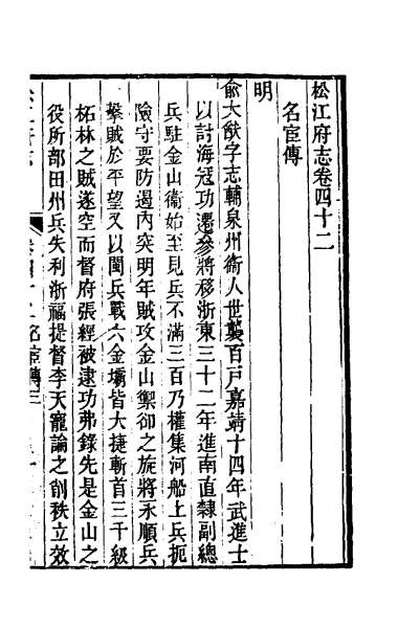 松江府志卷四十二
名宦傳
明
俞大猷字志輔泉州衛人世襲百戸嘉靖十四年武進士
以討海冦功遷叅將移浙東三十二年進南直隸副總
兵駐金山衛始至見兵不滿三百乃權集河船上兵扼
險守要防遏內突明年賊攻金山禦卻之旋將永順兵
擊賊於平望又以閩兵戰六金壩皆大捷斬首三千級
柘林之賊遂空而督府張經被逮功弗錄先是金山之
役所部田州兵失利浙福提督李天寵論之削秩立效
名宦傳三